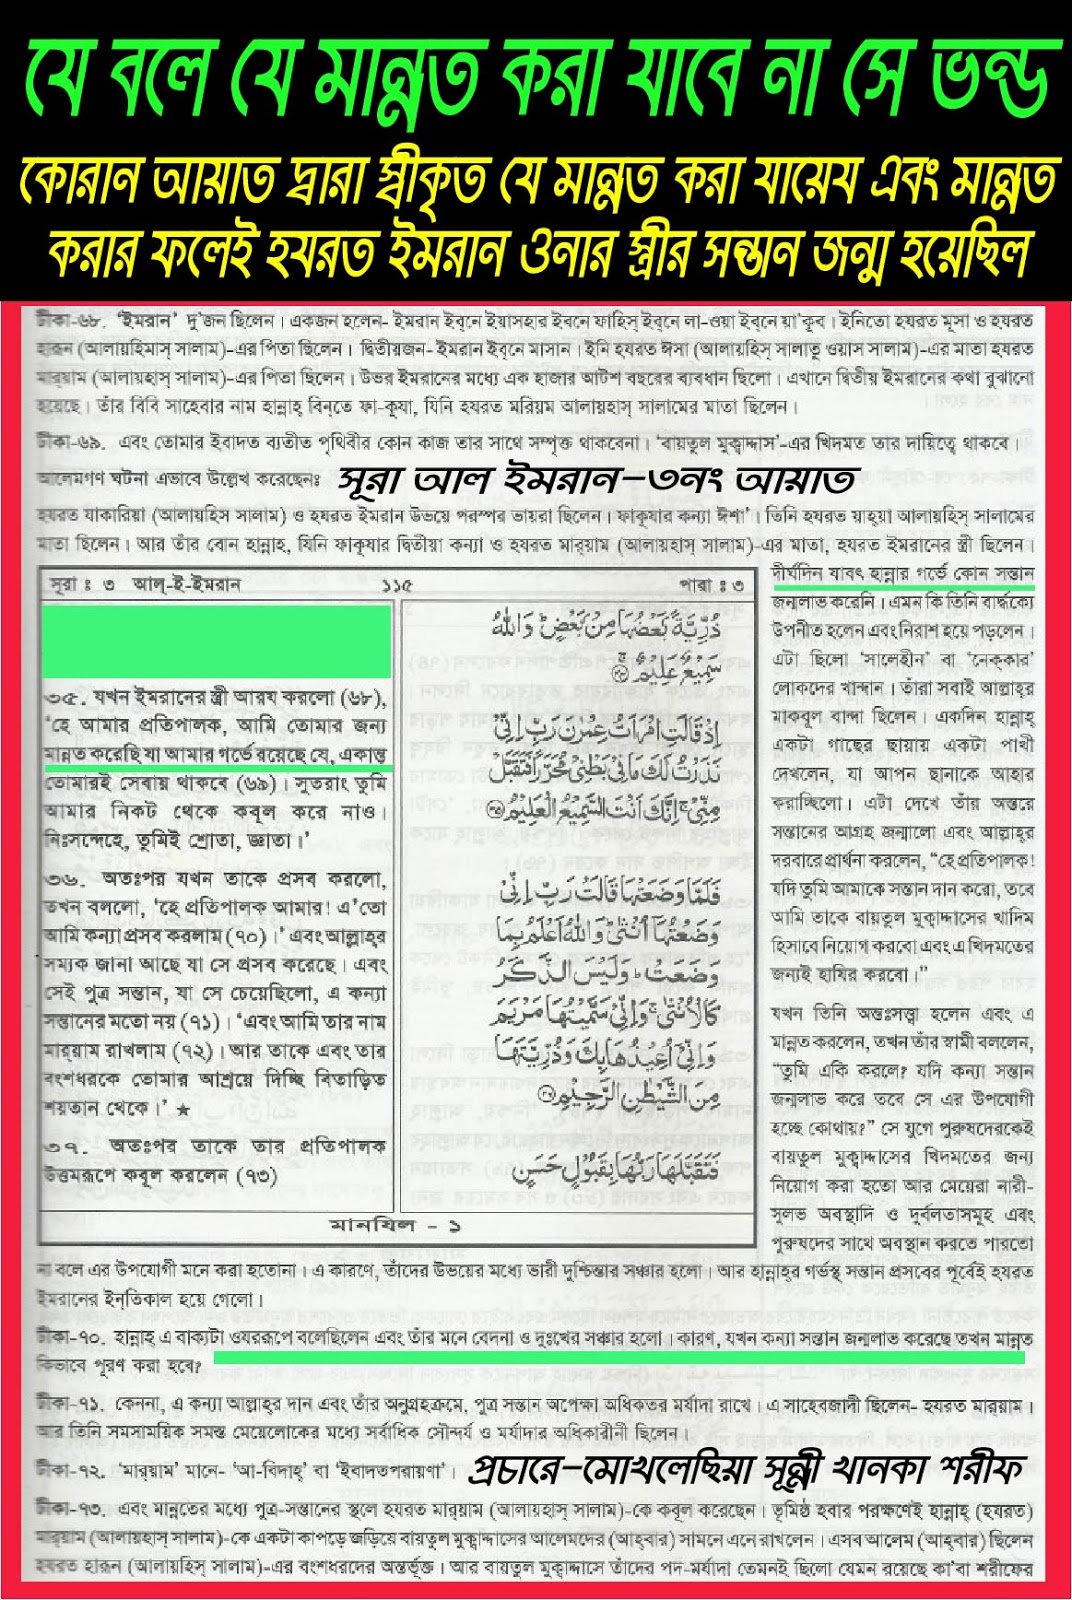 যে বলে যে মান্নত করা যাবে না সে ভন্ড
কোরান আয়াত দ্বারা স্বীকৃত যে মান্নত করা যায়েয এবং মান্নত
করার ফলেই হযরত ইমরান ওনার স্ত্রীর সন্তান জন্ম হয়েছিল
টীকা-৬৮. ‘ইমরান’ দু’জন ছিলেন। একজন হলেন- ইমরান ইব্‌নে ইয়াসহার ইবনে ফাহিস্ ইব্‌নে লা-ওয়া ইব্‌নে য়া’কূব। ইনিতো হযরত মূসা ও হযরত
হারূন (আলায়হিমাস্ সালাম)-এর পিতা ছিলেন। দ্বিতীয়জন- ইমরান ইব্‌নে মাসান। ইনি হযরত ঈসা (আলায়হিস্ সালাতু ওয়াস সালাম)-এর মাতা হযরত
মার্‌য়াম (আলায়হাস্ সালাম)-এর পিতা ছিলেন। উভয় ইমরানের মধ্যে এক হাজার আটশ বছরের ব্যবধান ছিলো। এখানে দ্বিতীয় ইমরানের কথা বুঝানো
হয়েছে। তাঁর বিবি সাহেবার নাম হান্নাহ্ বিন্‌তে ফা-কূযা, যিনি হযরত মরিয়ম আলায়হাস্ সালামের মাতা ছিলেন।
টীকা-৬৯. এবং তোমার ইবাদত ব্যতীত পৃথিবীর কোন কাজ তার সাথে সম্পৃক্ত থাকবেনা। ‘বায়তুল মুক্বাদ্দাস’-এর খিদমত তার দায়িত্বে থাকবে।
আলেমগণ ঘটনা এভাবে উল্লেখ করেছেনঃ সূরা আল ইমরান-৩নং আয়াত
হযরত যাকারিয়া (আলায়হিস সালাম) ও হযরত ইমরান উভয়ে পরস্পর ভায়রা ছিলেন। ফাকূযার কন্যা ঈশা’। তিনি হযরত য়াহ্‌য়া আলায়হিস্ সালামের
মাতা ছিলেন। আর তাঁর বোন হান্নাহ, যিনি ফাকূযার দ্বিতীয়া কন্যা ও হযরত মার্‌য়াম (আলায়হাস্ সালাম)-এর মাতা, হযরত ইমরানের স্ত্রী ছিলেন।
দীর্ঘদিন যাবৎ হান্নার গর্ভে কোন সন্তান
জন্মলাভ করেনি। এমন কি তিনি বার্দ্ধক্যে
উপনীত হলেন এবং নিরাশ হয়ে পড়লেন।
এটা ছিলো ‘সালেহীন’ বা ‘নেক্‌কার’
লোকদের খান্দান। তাঁরা সবাই আল্লাহ্‌র
মাকবূল বান্দা ছিলেন। একদিন হান্নাহ্
একটা গাছের ছায়ায় একটা পাখী
দেখলেন, যা আপন ছানাকে আহার
করাচ্ছিলো। এটা দেখে তাঁর অন্তরে
সন্তানের আগ্রহ জন্মালো এবং আল্লাহ্‌র
দরবারে প্রার্থনা করলেন, “হে প্রতিপালক!
যদি তুমি আমাকে সন্তান দান করো, তবে
আমি তাকে বায়তুল মুক্বাদ্দাসের খাদিম
হিসাবে নিয়োগ করবো এবং এ খিদমতের
জন্যই হাযির করবো।”
যখন তিনি অন্তঃসত্ত্বা হলেন এবং এ
মান্নত করলেন, তখন তাঁর স্বামী বললেন,
“তুমি একি করলে? যদি কন্যা সন্তান
জন্মলাভ করে তবে সে এর উপযোগী
হচ্ছে কোথায়?” সে যুগে পুরুষদেরকেই
বায়তুল মুক্বাদ্দাসের খিদমতের জন্য
নিয়োগ করা হতো আর মেয়েরা নারী-
সুলভ অবস্থাদি ও দুর্বলতাসমূহ এবং
পুরুষদের সাথে অবস্থান করতে পারতো
সূরা ঃ ৩ আল্-ই-ইমরান ১১৫ পারা ঃ ৩
৩৫. যখন ইমরানের স্ত্রী আরয করলো (৬৮),
‘হে আমার প্রতিপালক, আমি তোমার জন্য
মান্নত করেছি যা আমার গর্ভে রয়েছে যে, একান্ত
তোমারই সেবায় থাকবে (৬৯)। সুতরাং তুমি
আমার নিকট থেকে কবূল করে নাও।
নিঃসন্দেহে, তুমিই শ্রোতা, জ্ঞাতা।’
৩৬. অতঃপর যখন তাকে প্রসব করলো,
তখন বললো, ‘হে প্রতিপালক আমার! এ’তো
আমি কন্যা প্রসব করলাম (৭০)।’ এবং আল্লাহ্‌র
সম্যক জানা আছে যা সে প্রসব করেছে। এবং
সেই পুত্র সন্তান, যা সে চেয়েছিলো, এ কন্যা
সন্তানের মতো নয় (৭১)। ‘এবং আমি তার নাম
মার্‌য়াম রাখলাম (৭২)। আর তাকে এবং তার
বংশধরকে তোমার আশ্রয়ে দিচ্ছি বিতাড়িত
শয়তান থেকে।’ ★
৩৭. অতঃপর তাকে তার প্রতিপালক
উত্তমরূপে কবূল করলেন (৭৩)
ذُرِّيَّةً بَعْضُهَا مِنْ بَعْضٍ وَاللهُ
سَمِيعٌ عَلِيمٌ
إِذْ قَالَتِ امْرَأَتُ عِمْرٰنَ رَبِّ إِنِّي
نَذَرْتُ لَكَ مَا فِي بَطْنِي مُحَرَّرًا فَتَقَبَّلْ
مِنِّي إِنَّكَ أَنْتَ السَّمِيعُ الْعَلِيمُ
فَلَمَّا وَضَعَتْهَا قَالَتْ رَبِّ إِنِّي
وَضَعْتُهَا أُنْثٰى وَاللهُ أَعْلَمُ بِمَا
وَضَعَتْ وَلَيْسَ الذَّكَرُ
كَالْأُنْثٰى وَإِنِّي سَمَّيْتُهَا مَرْيَمَ
وَإِنِّي أُعِيذُهَا بِكَ وَذُرِّيَّتَهَا
مِنَ الشَّيْطٰنِ الرَّجِيمِ
فَتَقَبَّلَهَا رَبُّهَا بِقَبُولٍ حَسَنٍ
মানযিল - ১
না বলে এর উপযোগী মনে করা হতোনা। এ কারণে, তাঁদের উভয়ের মধ্যে ভারী দুশ্চিন্তার সঞ্চার হলো। আর হান্নাহ্‌র গর্ভস্থ সন্তান প্রসবের পূর্বেই হযরত
ইমরানের ইন্‌তিকাল হয়ে গেলো।
টীকা-৭০. হান্নাহ্ এ বাক্যটা ওযররূপে বলেছিলেন এবং তাঁর মনে বেদনা ও দুঃখের সঞ্চার হলো। কারণ, যখন কন্যা সন্তান জন্মলাভ করেছে তখন মান্নত
কিভাবে পূরণ করা হবে?
টীকা-৭১. কেননা, এ কন্যা আল্লাহ্‌র দান এবং তাঁর অনুগ্রহক্রমে, পুত্র সন্তান অপেক্ষা অধিকতর মর্যাদা রাখে। এ সাহেবজাদী ছিলেন- হযরত মার্‌য়াম।
আর তিনি সমসাময়িক সমস্ত মেয়েলোকের মধ্যে সর্বাধিক সৌন্দর্য ও মর্যাদার অধিকারীনী ছিলেন।
টীকা-৭২. ‘মার্‌য়াম’ মানে- ‘আ-বিদাহ্’ বা ‘ইবাদতপরায়ণা’। প্রচারে-মোখলেছিয়া সূন্নী খানকা শরীফ
টীকা-৭৩. এবং মান্নতের মধ্যে পুত্র-সন্তানের স্থলে হযরত মার্‌য়াম (আলায়হাস্ সালাম)-কে কবূল করেছেন। ভূমিষ্ঠ হবার পরক্ষণেই হান্নাহ্ (হযরত)
মার্‌য়াম (আলায়হাস্ সালাম)-কে একটা কাপড়ে জড়িয়ে বায়তুল মুক্বাদ্দাসের আলেমদের (আহ্‌বার) সামনে এনে রাখলেন। এসব আলেম (আহ্‌বার) ছিলেন
হযরত হারূন (আলায়হিস্ সালাম)-এর বংশধরদের অন্তর্ভূক্ত। আর বায়তুল মুক্বাদ্দাসে তাঁদের পদ-মর্যাদা তেমনই ছিলো যেমন রয়েছে কা’বা শরীফের